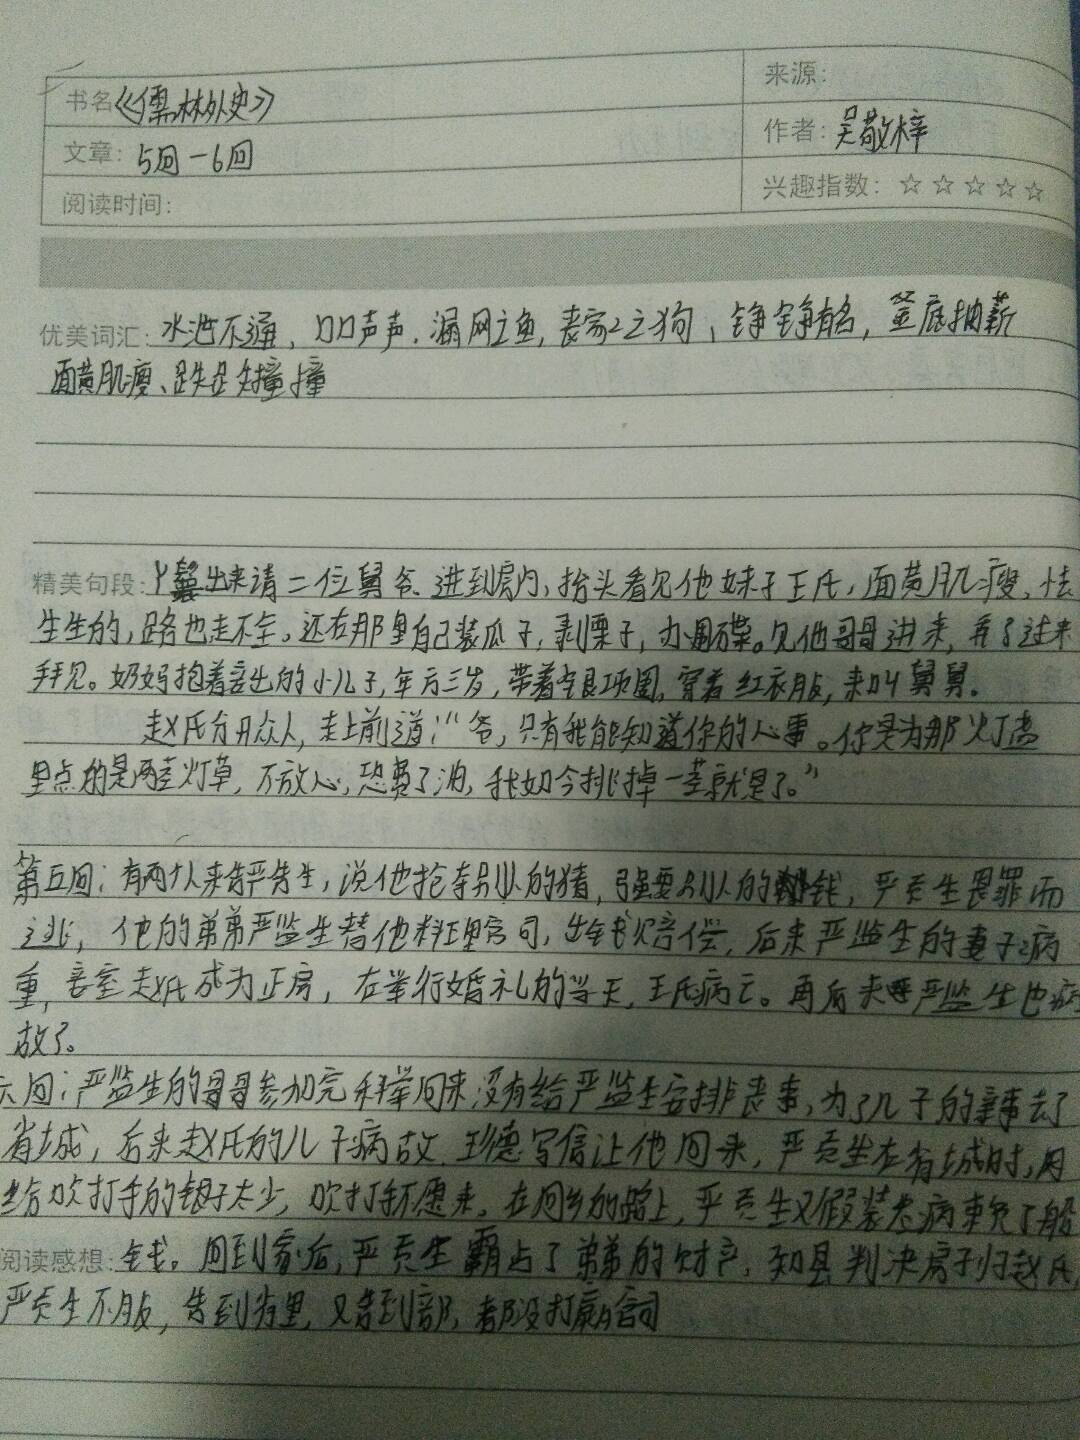 书名《儒林外史》
来源:
文章: 5回-6回
作者: 吴敬梓
阅读时间:
兴趣指数: ☆☆☆☆☆
优美词汇: 水泄不通、口口声声、漏网之鱼,丧家之狗、铮铮有名,釜底抽薪
面黄肌瘦、跌跌撞撞
精美句段: 丫鬟出来请二位舅爷、进到房内,抬头看见他妹子王氏,面黄肌瘦、怯
生生的,路也走不全。还在那里自己装瓜子,剥栗子,办围碟。见他哥哥进来,丢了过来
拜见。奶妈抱着妾出的小儿子,年方三岁,带着银项圈,穿着红衣服,来叫舅舅。
赵氏分开众人,走上前道:“爷,只有我能知道你的心事。你是为那灯盏
里点的是两茎灯草,不放心,恐费了油,我如今挑掉一茎就是了。”
第五回:有两个人来告严贡生,说他抢夺别人的猪,强要别人的钱,严贡生畏罪而
逃,他的弟弟严监生替他料理官司,出钱赔偿,后来严监生的妻子病
重,妾室赵氏成为正房,在举行婚礼的当天,王氏病亡。再后来严监生也病
故了。
六回:严监生的哥哥参加完科举回来没有给严监生安排丧事,为了儿子的亲事去了
省城,后来赵氏的儿子病故,王德写信让他回来,严贡生在省城时,因
给吹打手的银子太少,吹打手不愿来,在回乡的路上,严贡生又假装发病来免了船
阅读感想: 钱。回到家后,严贡生霸占了弟弟的财产,知县判决房子归赵氏,
严贡生不服,告到省里,又告到部,都没打赢官司